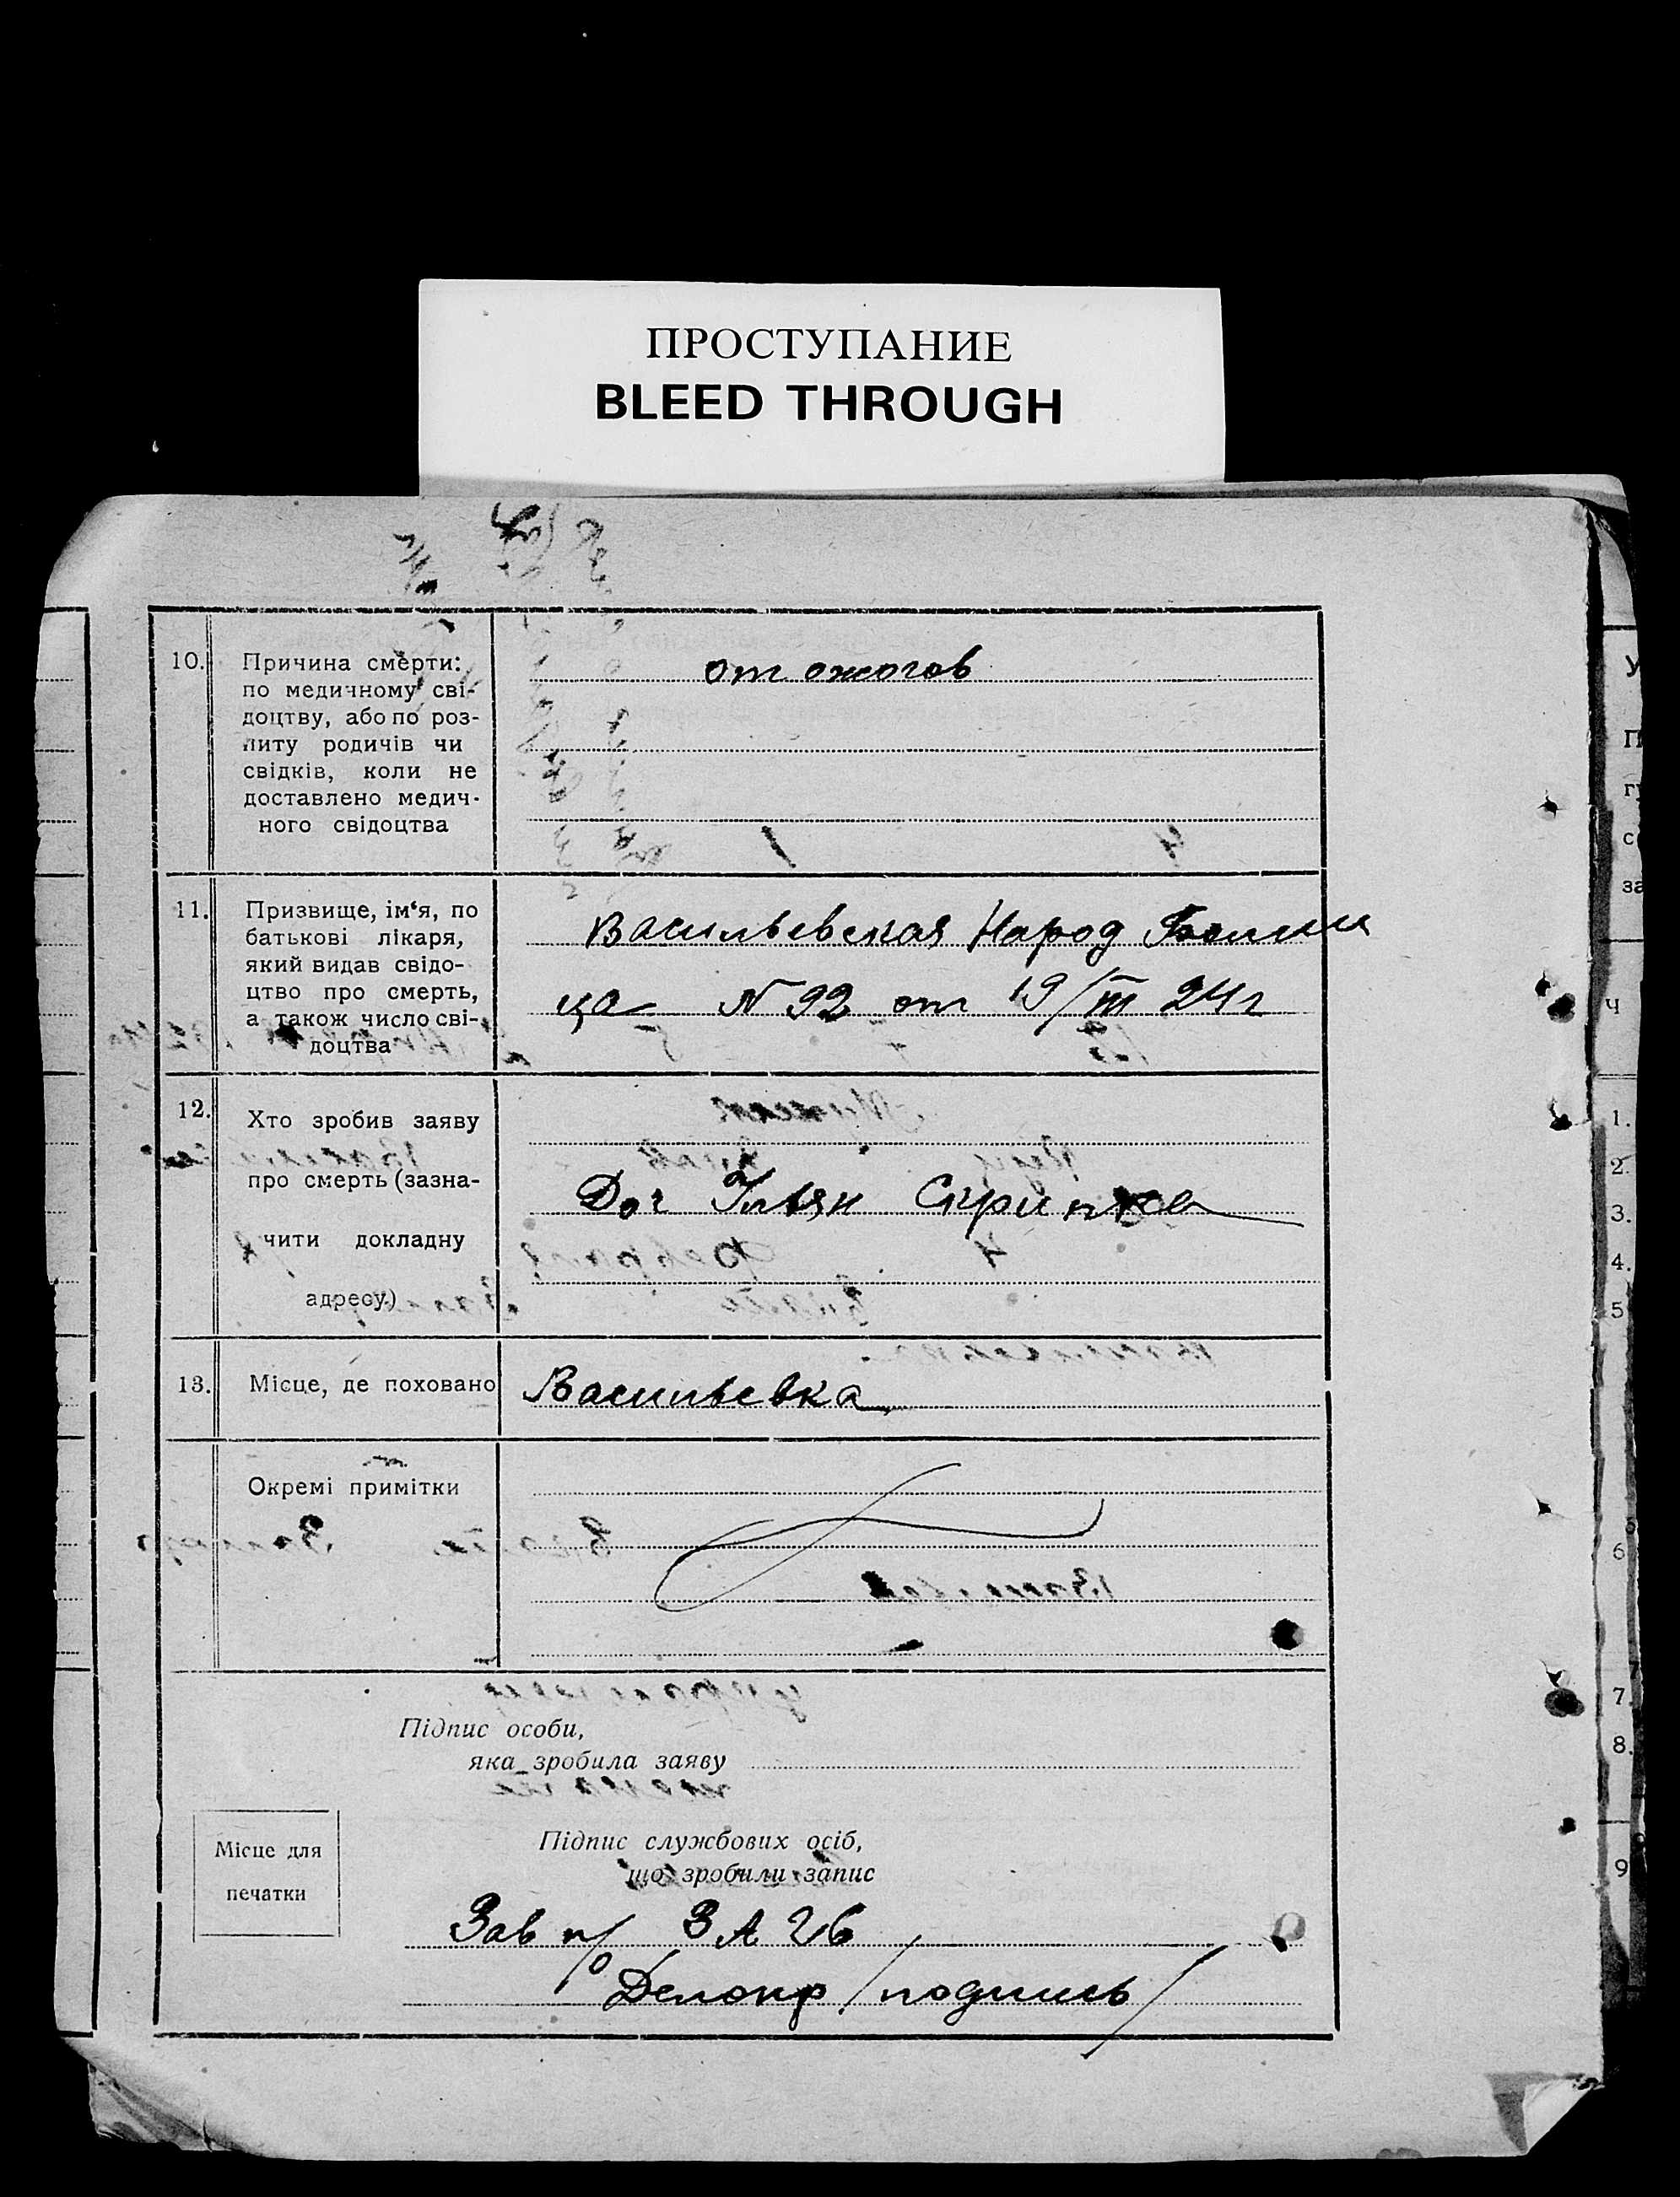 ПРОСТУПАНИЕ
BLEED THROUGH
10. Причина смерти:
по медичному сві-
доцтву, або по роз-
питу родичів чи
свідків, коли не
доставлено медич-
ного свідоцтва
от ожогов
11. Призвище, ім‘я, по
батькові лікаря,
який видав свідо-
цтво про смерть,
а також число сві-
доцтва
Васильевская Народ
ца N 92 от 19/III 24 г
12. Хто зробив заяву
про смерть (зазна-
чити докладну
адресу.)
Скрипка
13. Місце, де поховано
Васильевка
Окремі примітки
Підпис особи,
яка зробила заяву
Місце для
печатки
Підпис службових осіб,
що зробили запис
Зав п/о ЗАГС
Делопр /подпись/
У
П
с
за
Ч
1.
2.
3.
4.
5
6
7.
8.
9